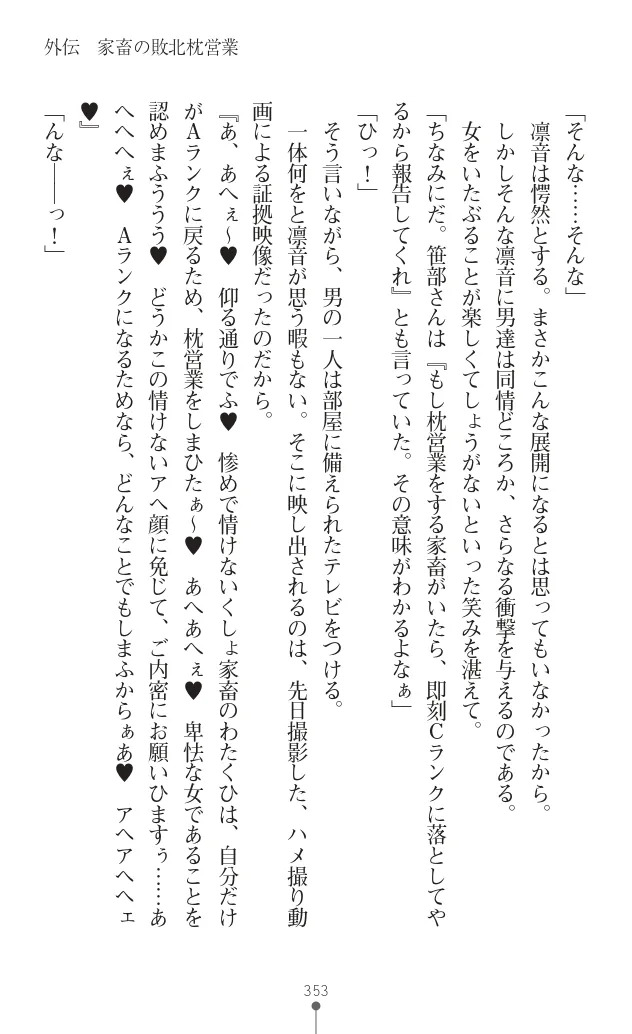 外伝　家畜の敗北枕営業
「そんな……そんな」
　凛音は愕然とする。まさかこんな展開になるとは思ってもいなかったから。
　しかしそんな凛音に男達は同情どころか、さらなる衝撃を与えるのである。
　女をいたぶることが楽しくてしょうがないといった笑みを湛えて。
「ちなみにだ。笹部さんは『もし枕営業をする家畜がいたら、即刻Ｃランクに落としてや
るから報告してくれ』とも言っていた。その意味がわかるよなぁ」
「ひっ！」
　そう言いながら、男の一人は部屋に備えられたテレビをつける。
　一体何をと凛音が思う暇もない。そこに映し出されるのは、先日撮影した、ハメ撮り動
画による証拠映像だったのだから。
『あ、あへぇ～♥　仰る通りでふ♥　惨めで情けないくしょ家畜のわたくひは、自分だけ
がＡランクに戻るため、枕営業をしまひたぁ～♥　あへあへぇ♥　卑怯な女であることを
認めまふううう♥　どうかこの情けないアヘ顔に免じて、ご内密にお願いひますぅ……あ
へへへぇ♥　Ａランクになるためなら、どんなことでもしまふからぁあ♥　アヘアヘヘェ
♥』
「んな――っ！」
353